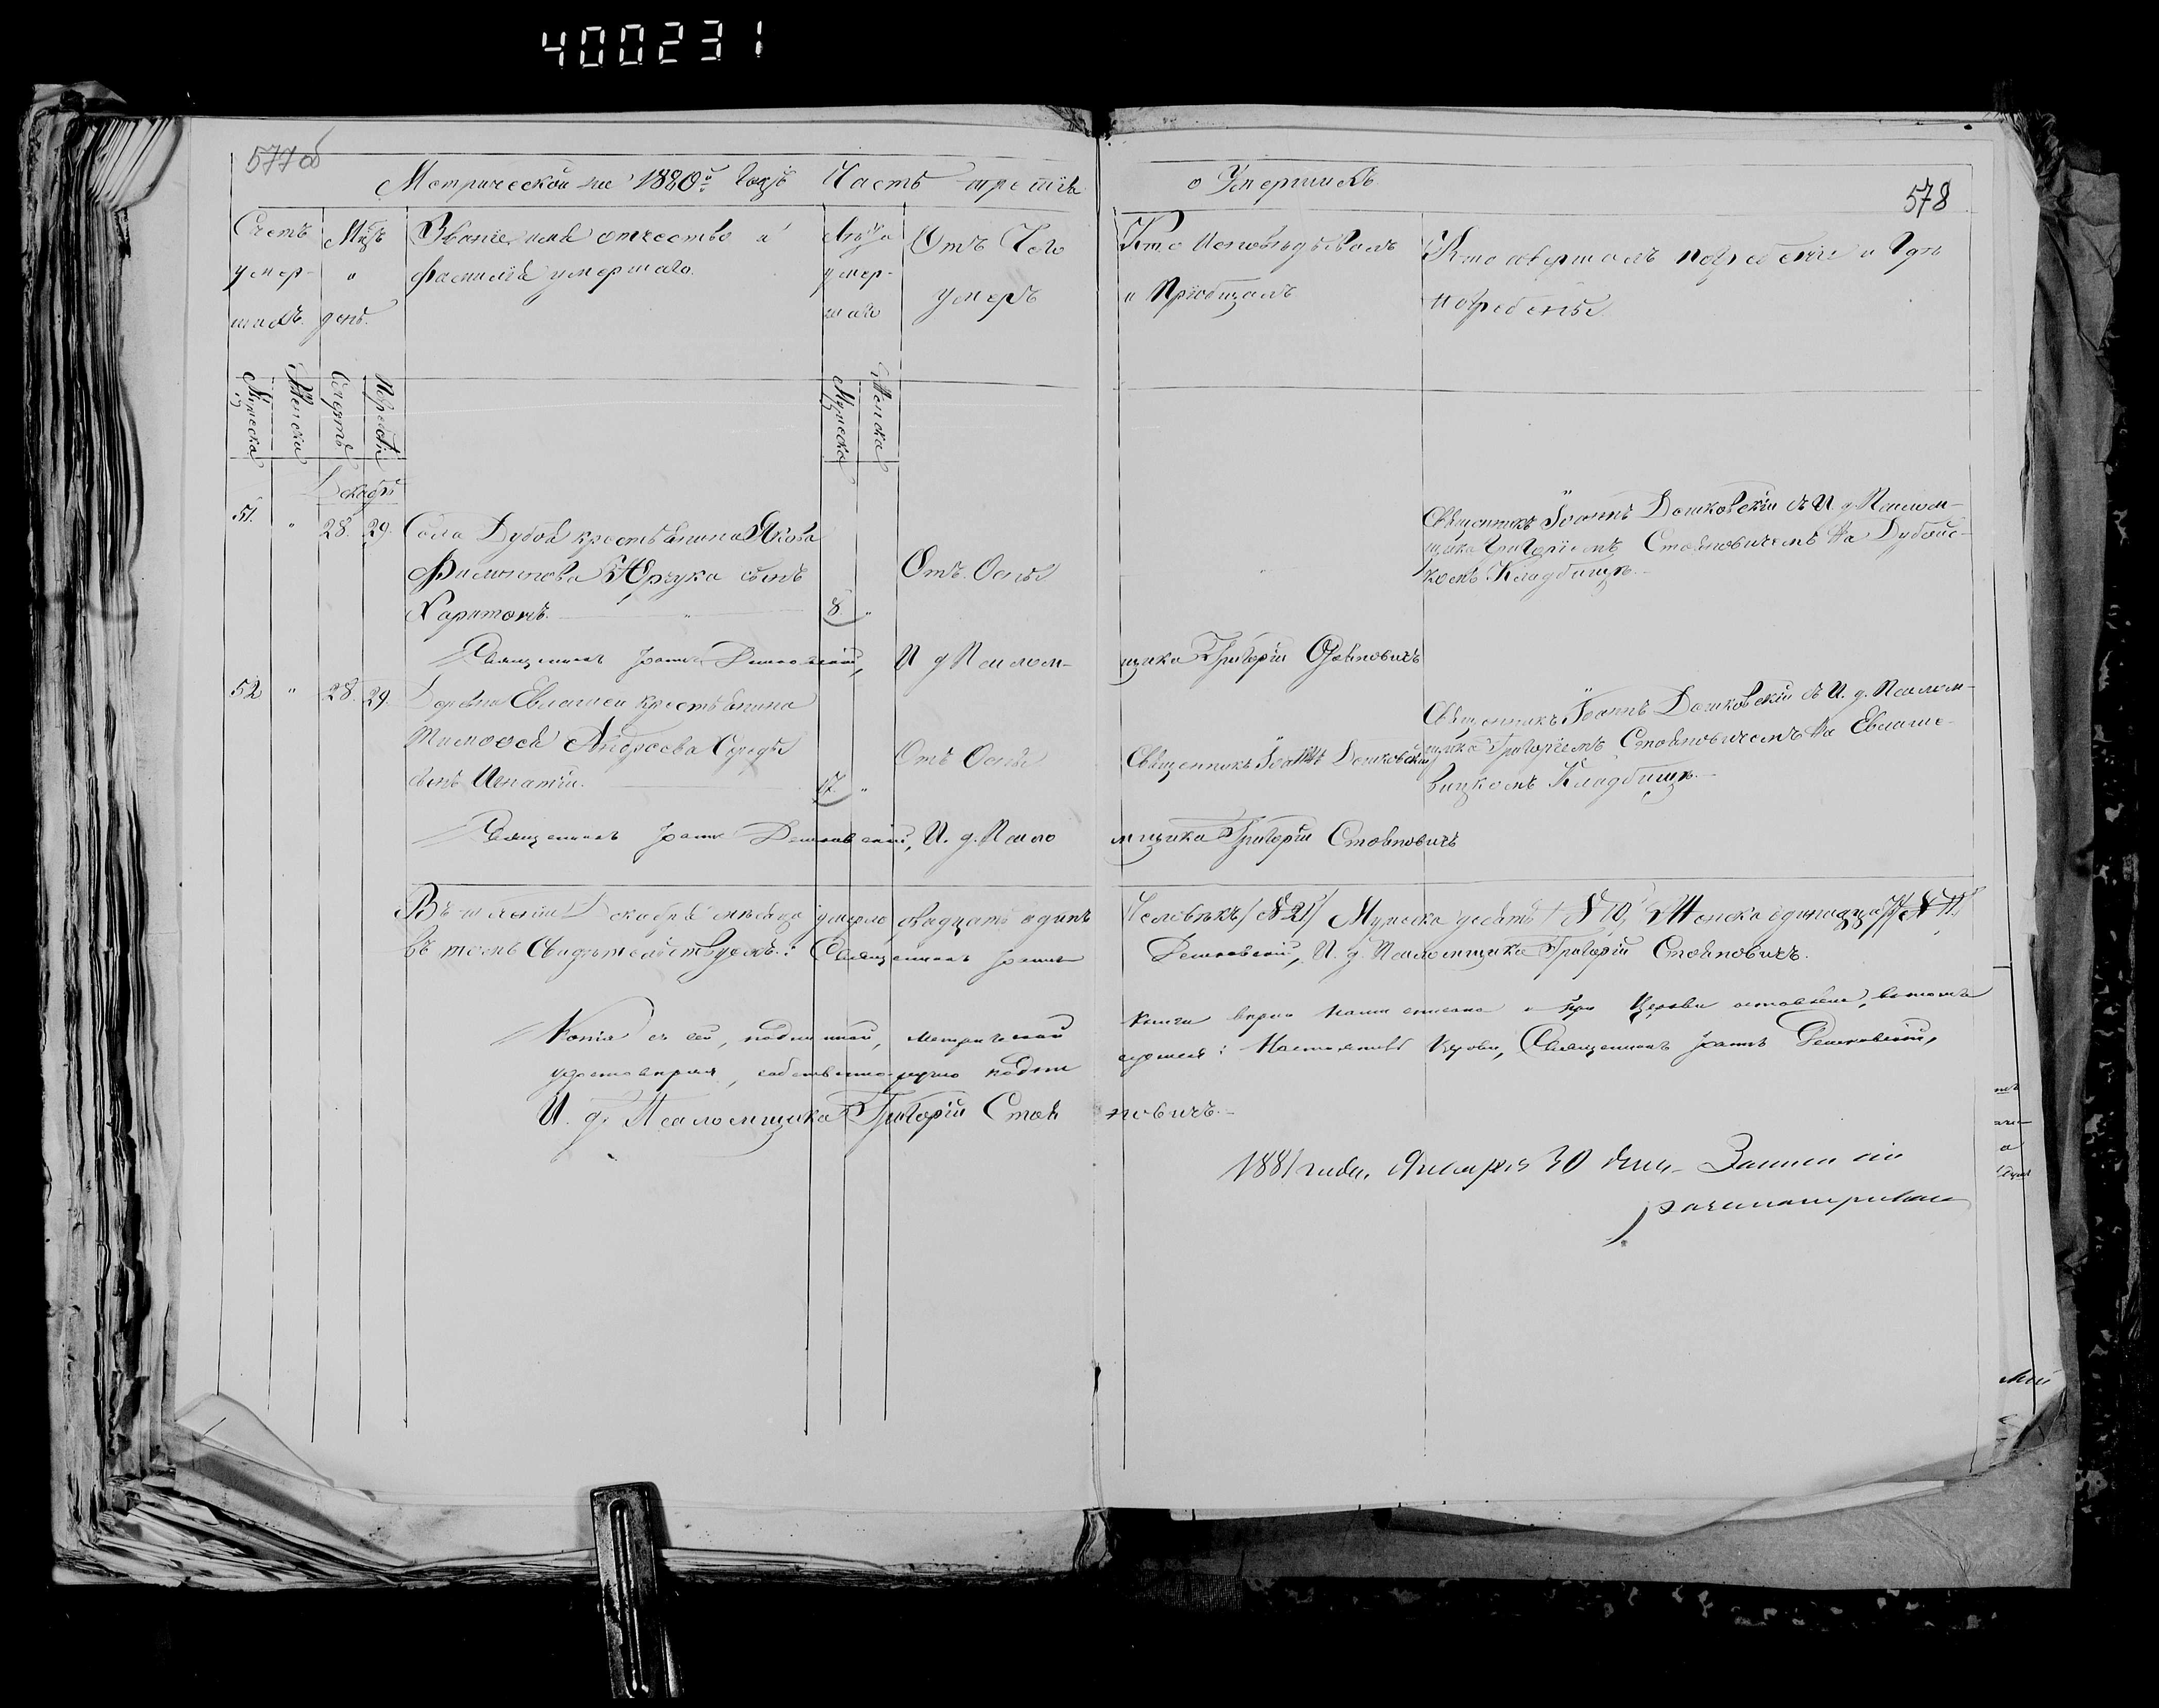 400231
577об
Метрической на 1880й Годъ Часть третія
о Умершихъ
578
Счетъ умер- шихъ.
Мцъ и день.
Званіе, имя отчество и
фамилія умершаго.
Лѣта умер- шаго
Отъ Чего
умеръ
Кто Исповѣдывалъ
и Пріобщалъ
Кто совершалъ погребеніе и Гдѣ
погребены
Мужеска
Женска
Смерть
Погребен
Мужеска
Женска
Декабрь
51. " 28. 29. Села Дубой крестьянина Якова
Филиппова Юрчука сынъ
Харитонъ. " 8. "
Отъ Оспы
Священникъ Іоаннъ Дашковскій съ И. д Псалом-
щика Григоріемъ Стояновичемъ На Дубойс-
комъ Кладбищѣ.
Священникъ Іоаннъ Дашковскій, И д Псалом- щика Григорій Стояновичъ
52 " 28. 29. Деревни Евлаши крестьянина
Тимофея Андреева Середы
сынъ Игнатій. 17. "
Отъ Оспы
Священникъ Іоаннъ Дашковскій
Священникъ Іоаннъ Дашковскій съ И. д. Псалом-
щика Григоріемъ Стояновичемъ На Евлаше-
вицкомъ Кладбищѣ.
Священникъ Іоаннъ Дашковскій, И. д. Псало мщика Григорій Стояновичъ
Въ теченіи Декабря мѣсяца умерло двадцать одинъ Человѣкъ / № 21 / Мужеска десять / № 10, Женска одинадцать / № 11 /
въ томъ Свидѣтельствуемъ: Священникъ Іоаннъ Дашковскій, И. д. Псаломщика Григорій Стояновичъ.
Копія съ сей, подлинной, метрической книги вѣрно списана и при Церкви оставлена, въ томъ
удостовѣряя, собственноручно подпи суемся: Настоятель Церкви, Священникъ Іоаннъ Дашковскій,
И. д. Псаломщика Григорій Стоя новичъ.
1881 года, Января 30 дня